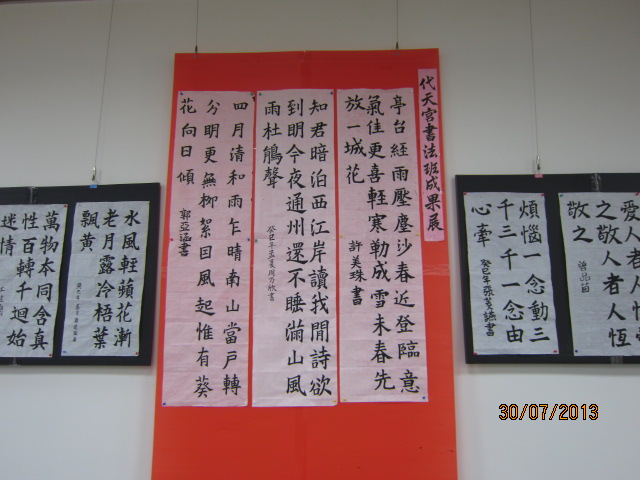 代天宮書法班成果展
亭台經雨壓塵沙春近登臨意
氣佳更喜輕寒勒成雪未春先
放一城花
許美珠書
知君暗泊西江岸讀我閒詩欲
到明今夜通州還不睡滿山風
雨杜鵑聲
癸巳年孟夏周乃欣書
四月清和雨乍晴南山當戶轉
分明更無柳絮因風起惟有葵
花向日傾
郭亞溢書
愛人者人恆
之敬人者人恆
敬之
曾品茵
煩惱一念動三
千三千一念由
心牽
癸巳年張芝議書
水風輕蘋花漸
老月露冷梧葉
飄黃
萬物本同含真
性百轉千迴始
迷情
30/07/2013